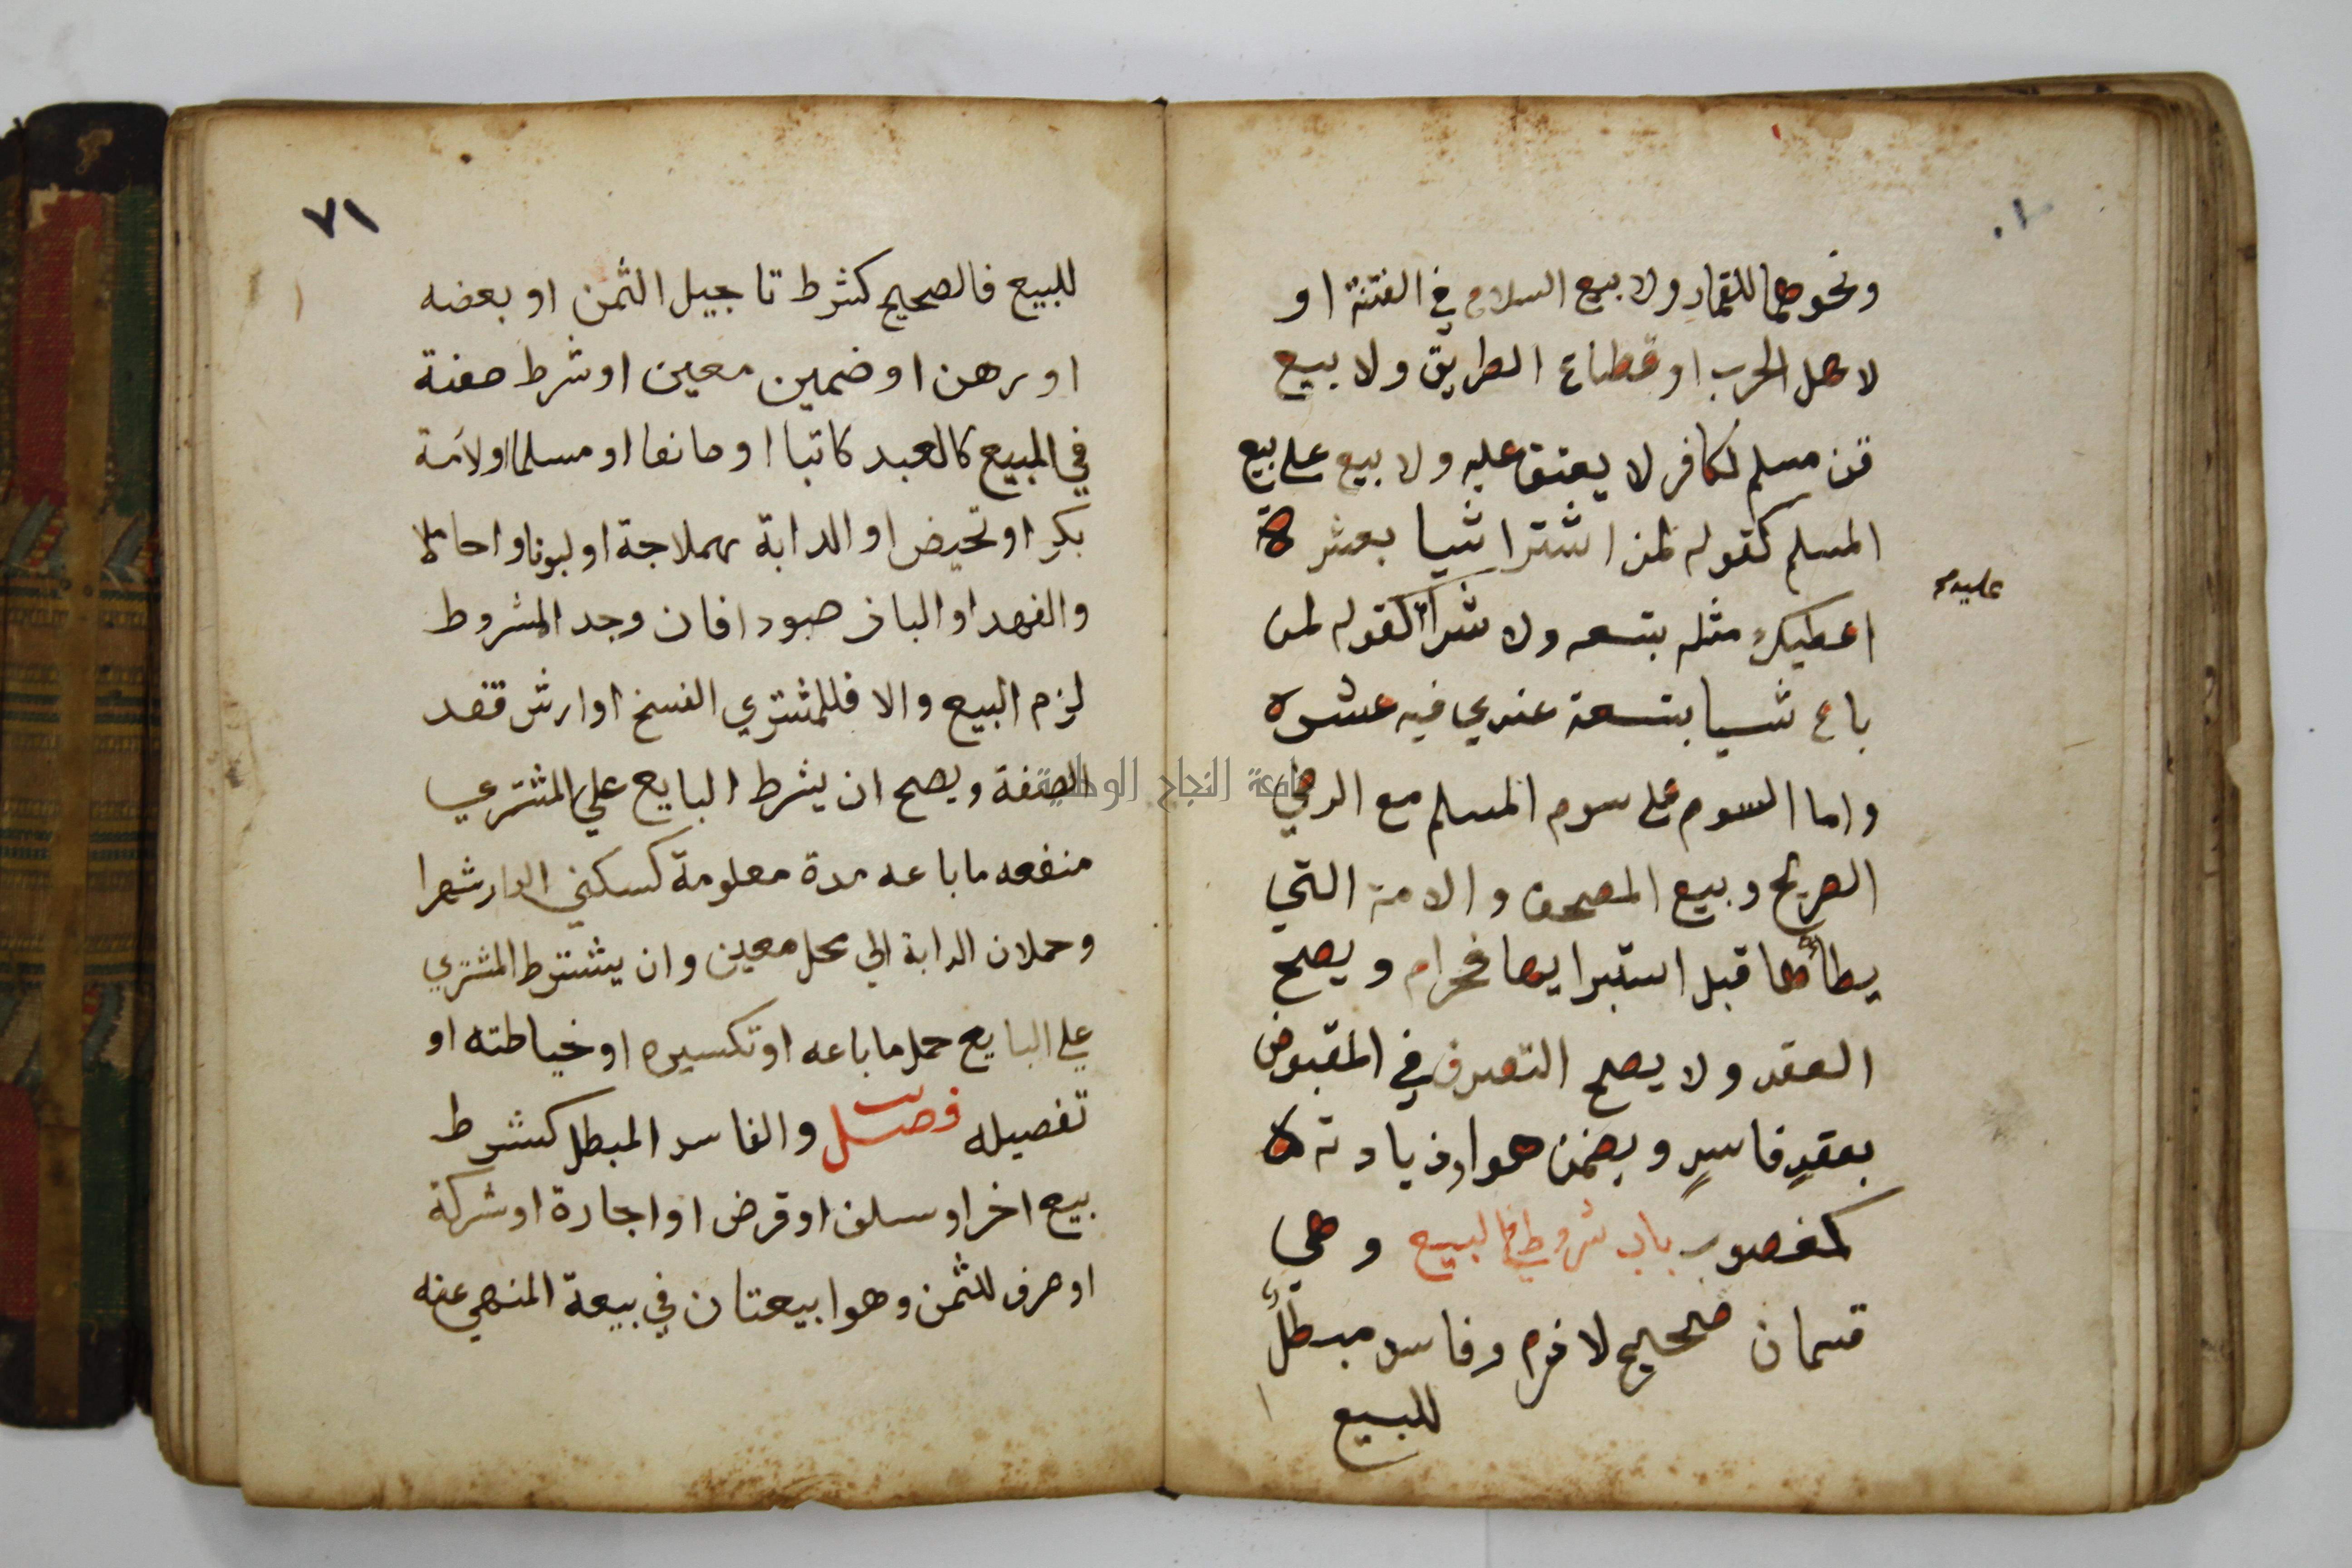 ونحوهما للقمار ولا بيع السلاح في الفتنة او
لاهل الحرب او قطاع الطريق ولا بيع
قن مسلم لكافر لا يعتق عليه ولا بيع علي بيع
المسلم كقوله لمن اشترا شيا بعشرة
اعطيك مثله بتسعه ولا شراء كقوله لمن
عليه
باع شيا بتسعة عندي فيه عشره
واما السوم على سوم المسلم مع الرضي
الصريح وبيع المصحف والامة التي
يطأها قبل استبرايها فحرام ويصح
العقد ولا يصح التصرف في المقبوض
بعقدٍ فاسدٍ ويضمن هو وزيادته
كمغصوب باب شروط في البيع وهي
قسمان صحيح لازم وفاسد مبطلٌ
للبيع
٧١
للبيع فالصحيح كشرط تاجيل الثمن او بعضه
او رهن او ضمين معين او شرط صفة
في المبيع كالعبد كاتبا او صانعا او مسلما اولامة
بكرا وتحيض او الدابة هملاجة او لبونا وحاملا
والفهد او الباز صيودا فان وجد المشروط
لزم البيع والا فللمشتري الفسخ او ارش فقد
الصفة ويصح ان يشرط البايع علي المشتري
منفعه ما باعه مدة معلومة كسكني الدار شهرا
وحملان الدابة الي محل معين وان يشترط المشتري
علي البايع حمل ما باعه او تكسيره او خياطته او
تفصيله فصل والفاسد المبطل كشرط
بيع اخر او سلف او قرض او اجارة او شركة
او صرف للثمن وهوا بيعتان في بيعة المنهي عنه
جامعة النجاح الوطنية